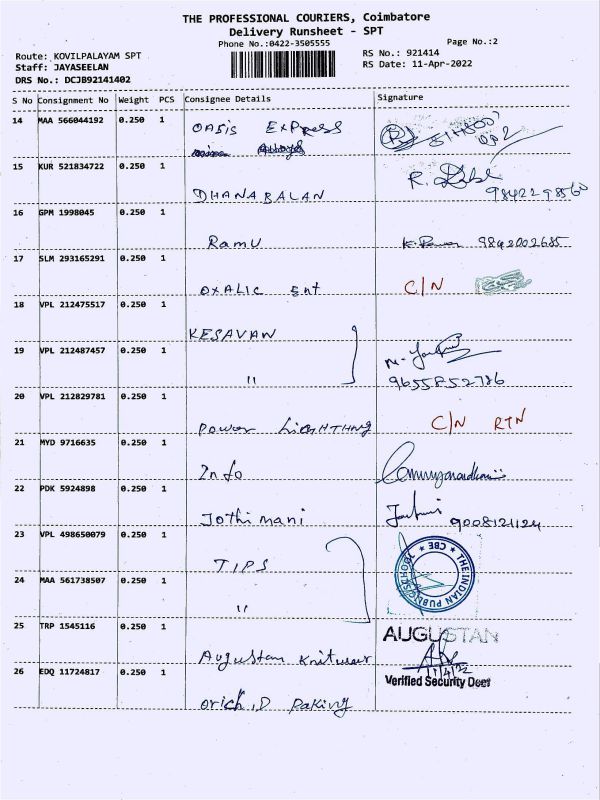 THE PROFESSIONAL COURIERS, Coimbatore
Delivery Runsheet - SPT
Phone No.:0422-3505555
Page No.:2
Route: KOVILPALAYAM SPT
RS No.: 921414
Staff: JAYASEELAN
RS Date: 11-Apr-2022
DRS No.: DCJB92141402
S No Consignment No Weight PCS Consignee Details Signature
14 MAA 566044192 0.250 1 OASIS EXPRESS
15 KUR 521834722 0.250 1 DHANABALAN R. 9842298560
16 GPM 1998045 0.250 1 Ramu 9842002685
17 SLM 293165291 0.250 1 OXALIC Ent C/N
18 VPL 212475517 0.250 1 KESAVAN
19 VPL 212487457 0.250 1 " 9655852786
20 VPL 212829781 0.250 1 Power LIGHTHNG C/N RTN
21 MYD 9716635 0.250 1 Info
22 PDK 5924898 0.250 1 Jothimani 9008121124
23 VPL 498650079 0.250 1 TIPS
24 MAA 561738507 0.250 1 "
THE INDIAN PUBLIC SCHOOL * CBE *
25 TRP 1545116 0.250 1 Augustan Knitwear AUGUSTAN
11/4/22
Verified Security Dept
26 EDQ 11724817 0.250 1 Orich.D Paking